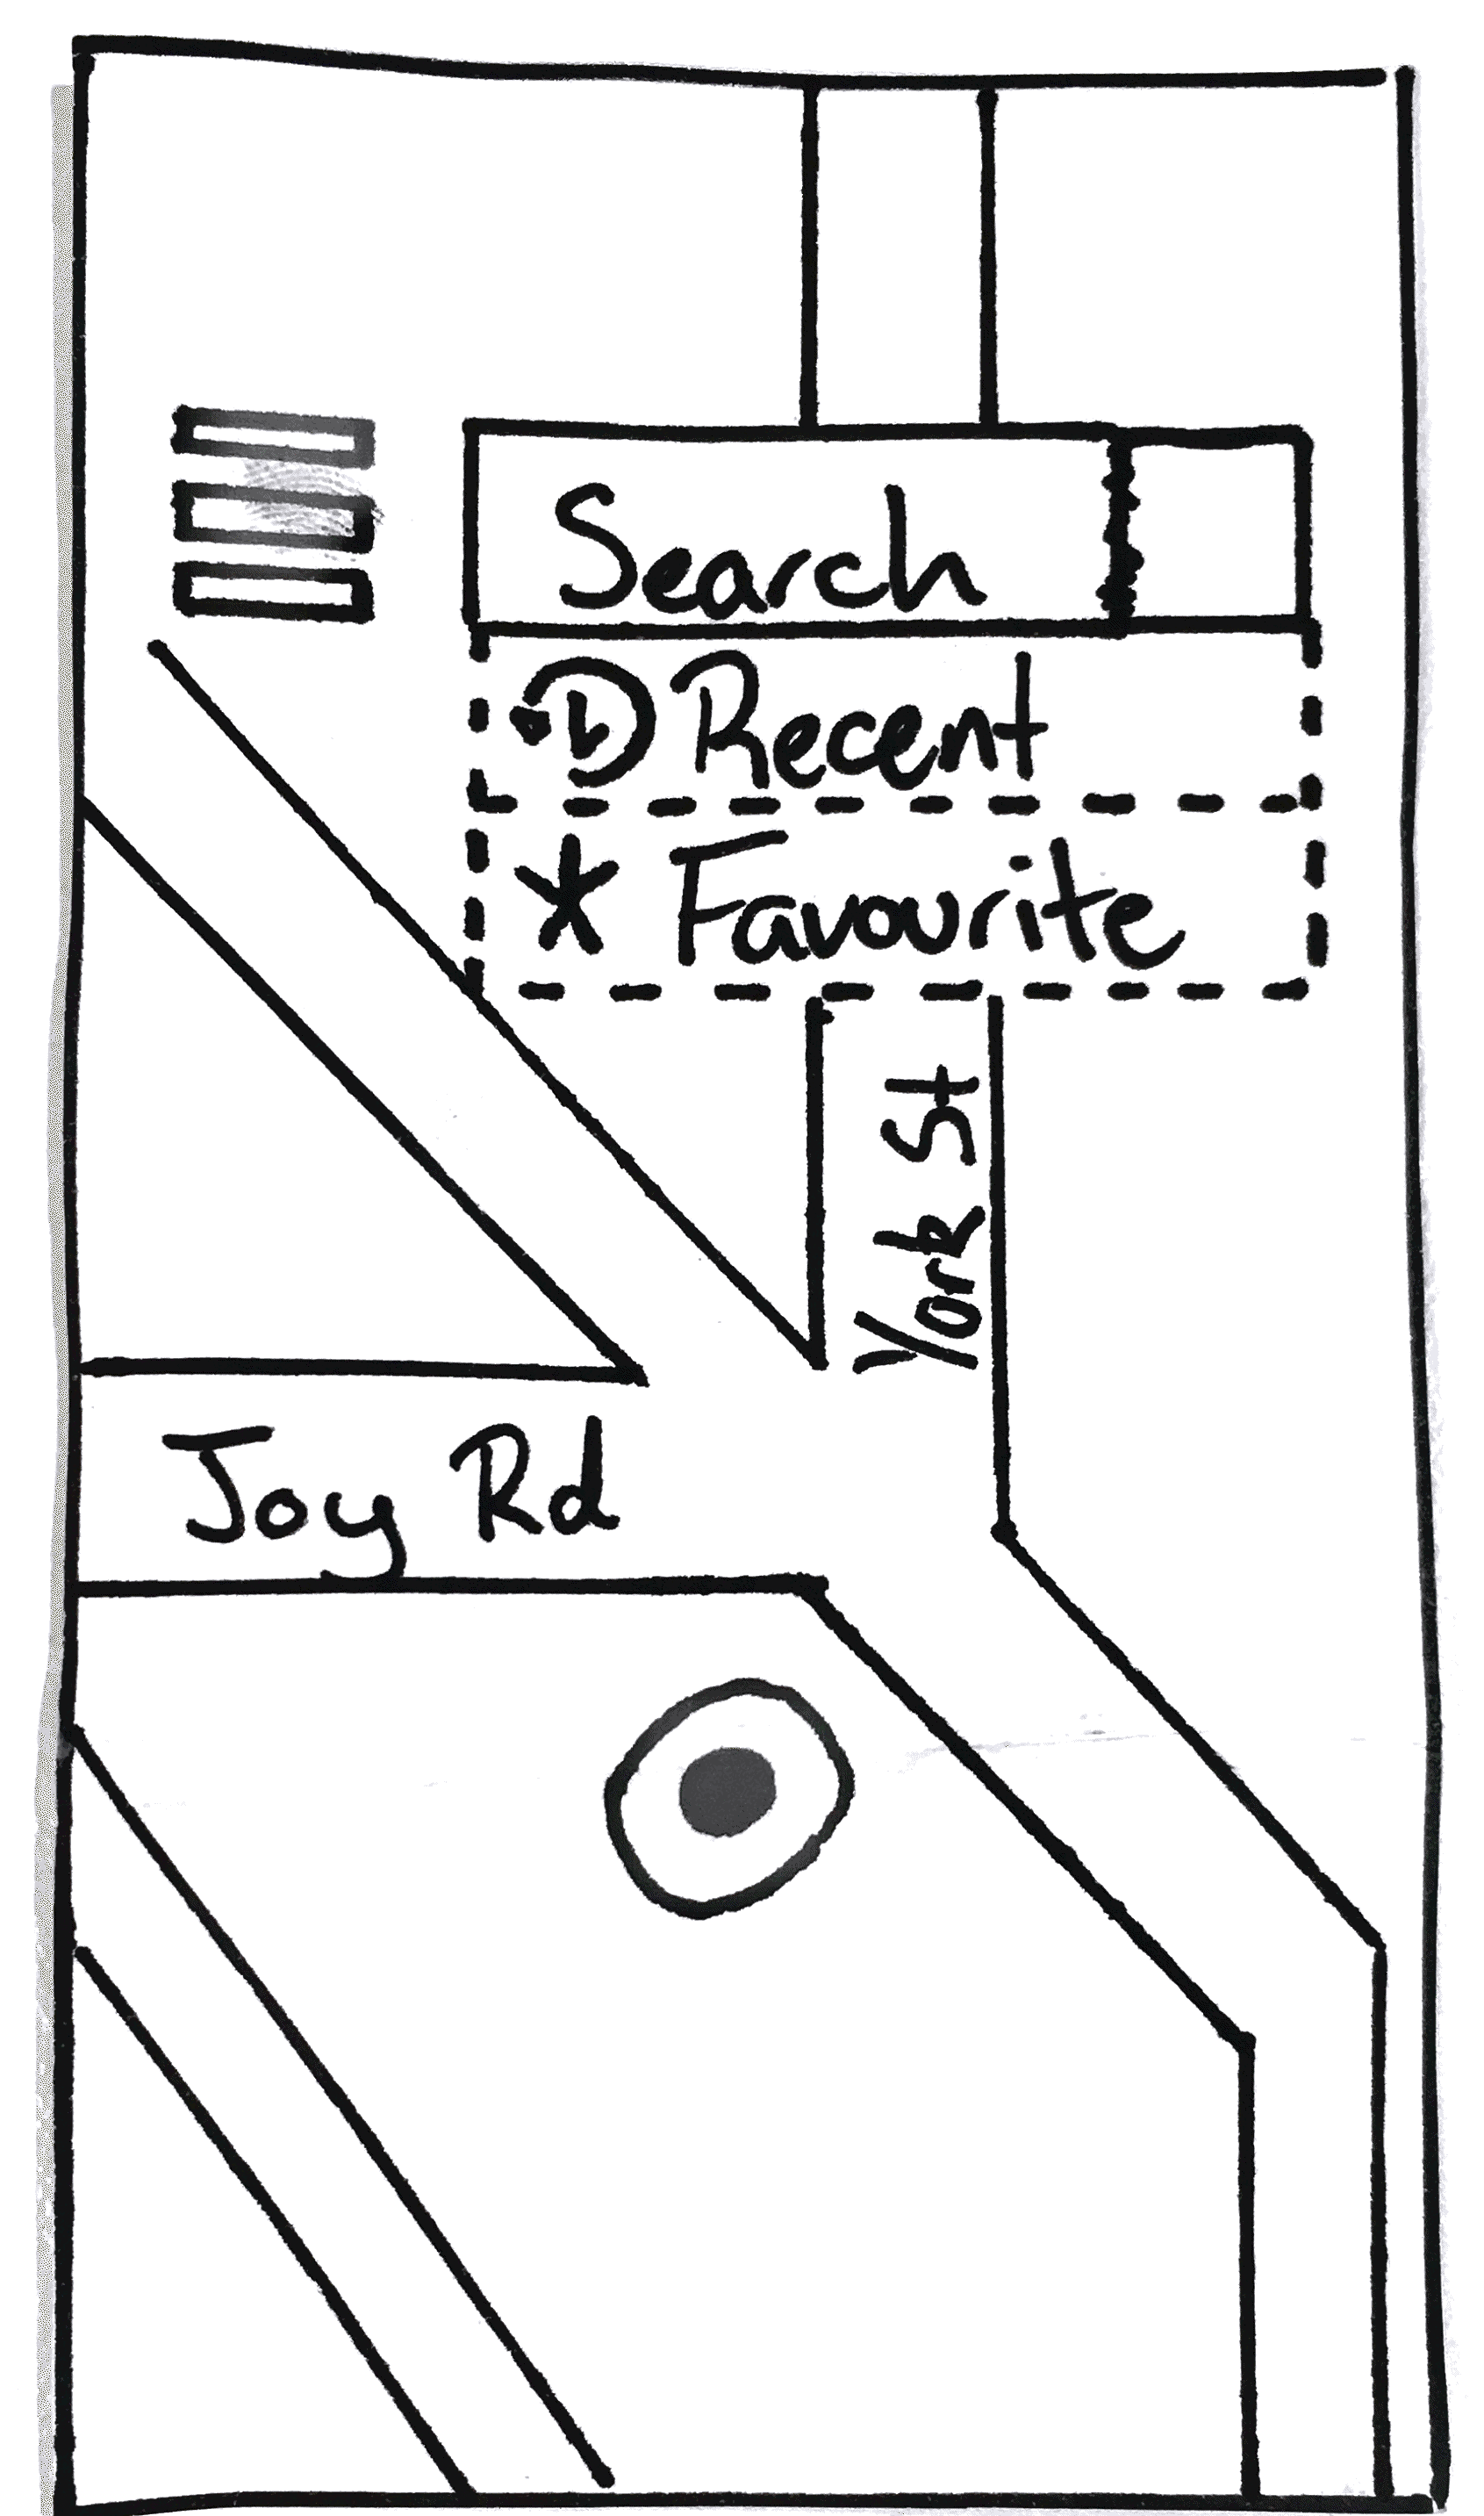 Search
Recent
* Favourite
York St
Joy Rd